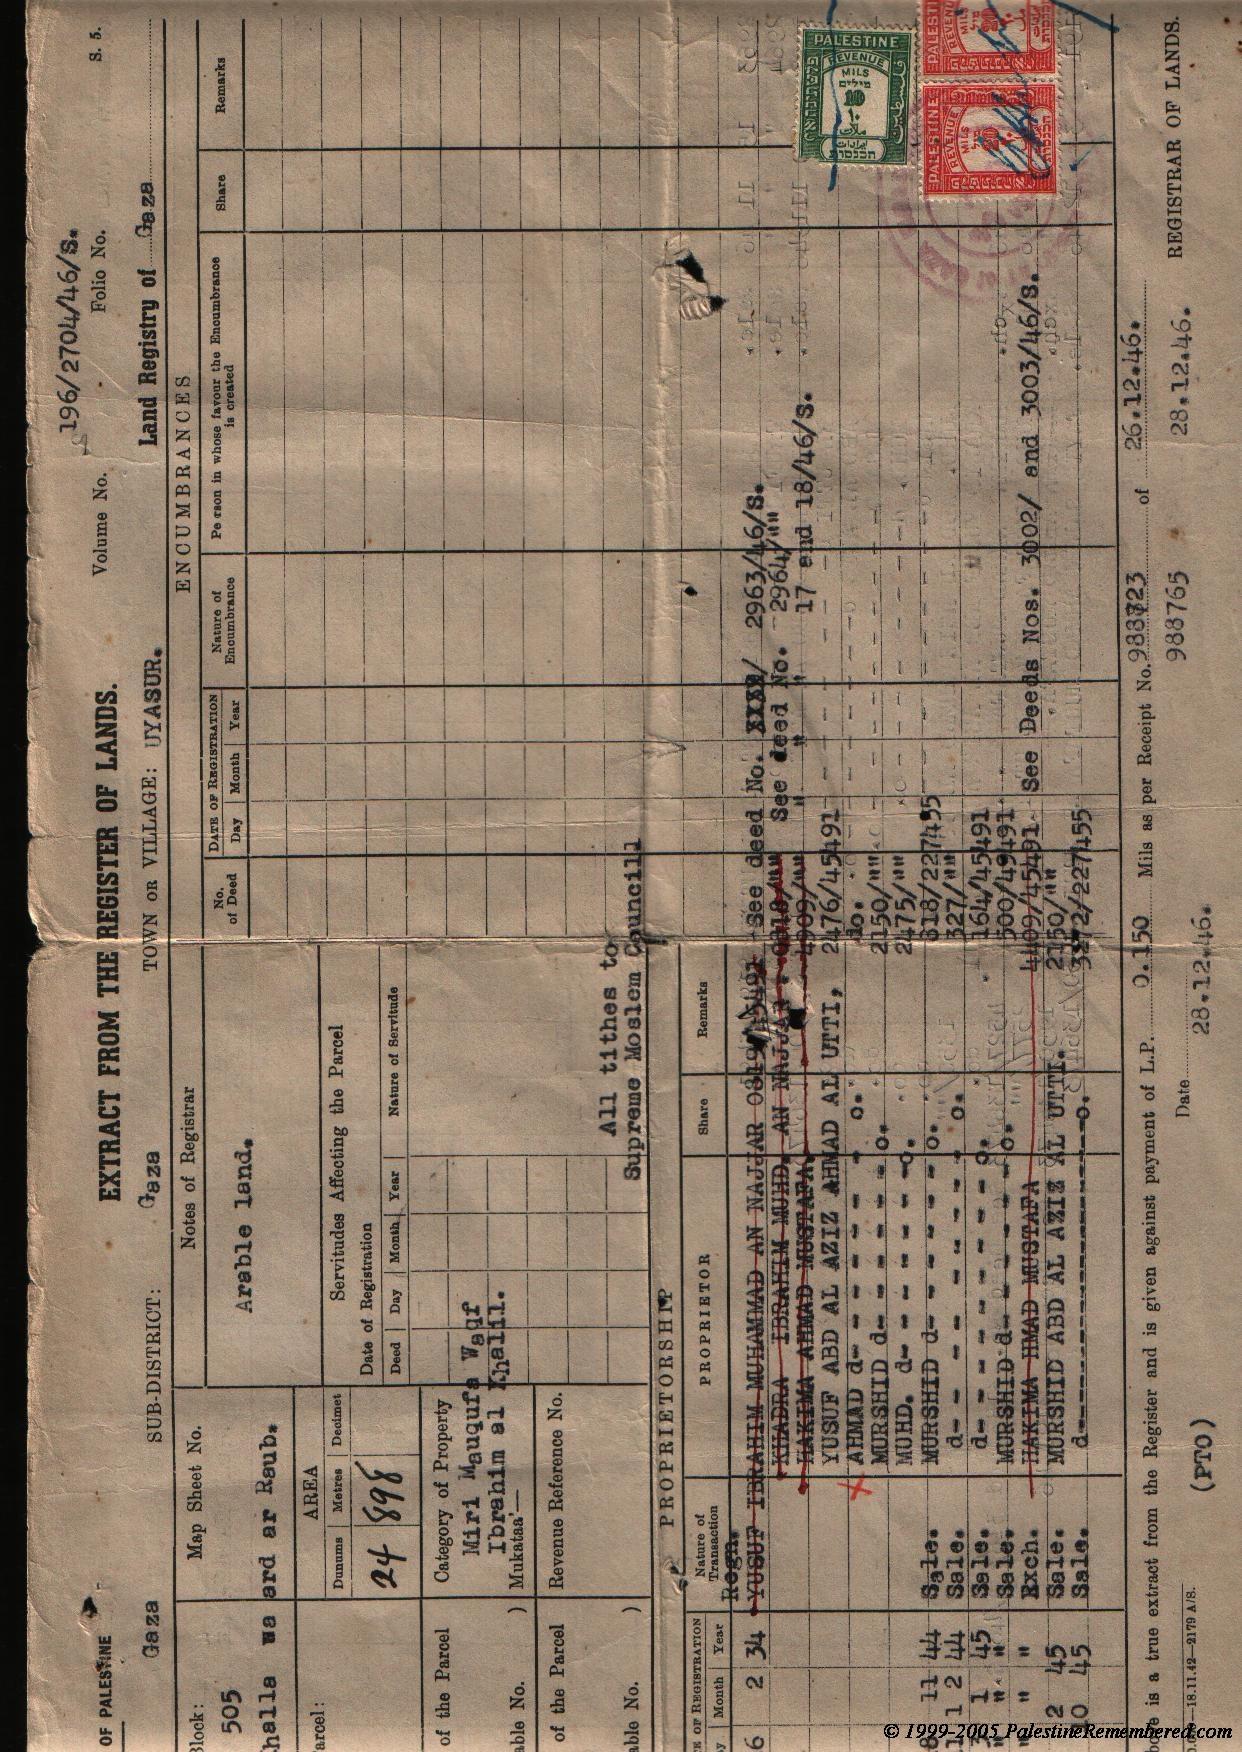 196/2704/46/S.
OF PALESTINE
EXTRACT FROM THE REGISTER OF LANDS.
Volume No.
Folio No.
S. 5.
Gaza
SUB-DISTRICT:
Gaza
TOWN OR VILLAGE: UYASUR.
Land Registry of Gaza
Block:
Map Sheet No.
Notes of Registrar
ENCUMBRANCES
505
Arable land.
No. of Deed
DATE OF REGISTRATION
Day
Month
Year
Nature of Encumbrance
Person in whose favour the Encumbrance is created
Share
Remarks
Khalla wa ard ar Raub.
arcel:
AREA
Dunums
Metres
Decimet
24
898
Servitudes Affecting the Parcel
Date of Registration
Deed
Day
Month
Year
Nature of Servitude
of the Parcel
able No. )
Category of Property
Miri Mauqufa Waqf
Ibrahim al Khalil.
Mukataa'—
of the Parcel
able No. )
Revenue Reference No.
All tithes to
Supreme Moslem Councill
PROPRIETORSHIP
E OF REGISTRATION
Month
Year
Nature of Transaction
PROPRIETOR
Share
Remarks
Regn.
6 2 34 YUSUF IBRAHIM MUHAMMAD AN NAJJAR See deed No. 2963/46/S.
KHADRA IBRAHIM MUHD. AN NAJJAR See deed No. 2964/""
HAKIMA AHMAD MUSTAFA. 4909/"" " " 17 and 18/46/S.
YUSUF ABD AL AZIZ AHMAD AL UTTI, 2476/45491
AHMAD d- - - - - o. do.
MURSHID d- - - - - o. 2150/""
MUHD. d- - - - - o. 2475/""
8 11 44 Sale. MURSHID d- - - - - o. 318/227455
1 2 44 Sale. d- - - - - o. 327/""
1 45 Sale. d- - - - - o. 164/45491
" " Sale. MURSHID d- - - - - o. 500/49491
" " Exch. HAKIMA HMAD MUSTAFA 4409/45491 See Deeds Nos. 3002/ and 3003/46/S.
2 45 Sale. MURSHID ABD AL AZIZ AL UTTI. 2150/""
10 45 Sale. d- - - - - o. 3272/227455
PALESTINE
REVENUE
MILS
מילים
10
١٠
ملات
הכנסה
PALESTINE
REVENUE
MILS
20
PALESTINE
REVENUE
20
bove is a true extract from the Register and is given against payment of L.P. 0.150 Mils as per Receipt No. 988723 of 26.12.46.
988765 28.12.46.
Date 28.12.46.
REGISTRAR OF LANDS.
(PTO)
18.11.42—2179 A/S.
© 1999-2005 PalestineRemembered.com